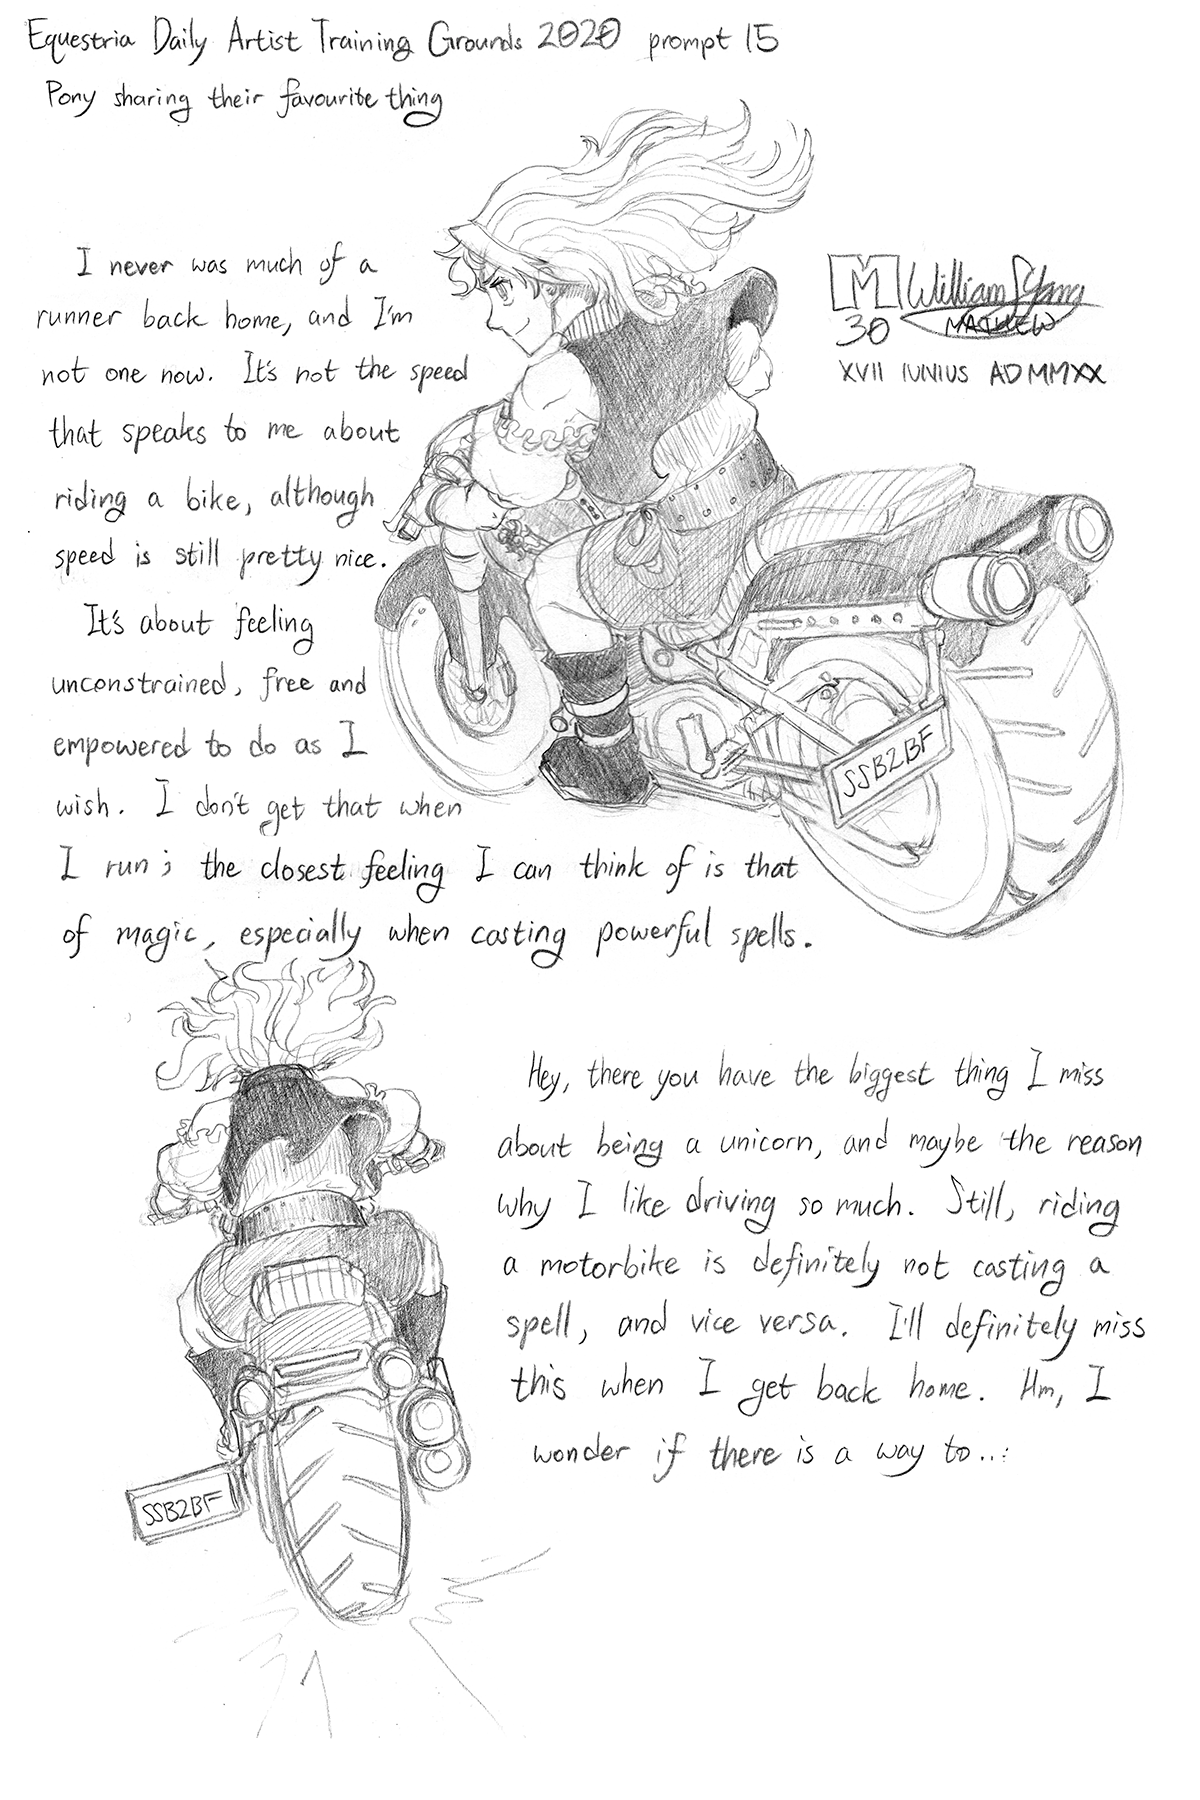 Equestria Daily Artist Training Grounds 2020 prompt 15
Pony sharing their favourite thing
I never was much of a
runner back home, and I'm
not one now. It's not the speed
that speaks to me about
riding a bike, although
speed is still pretty nice.
It's about feeling
unconstrained, free and
empowered to do as I
wish. I don't get that when
I run; the closest feeling I can think of is that
of magic, especially when casting powerful spells.
M William S Yang
30 MATHEW
XVII IUNIUS AD MMXX
SSB2BF
Hey, there you have the biggest thing I miss
about being a unicorn, and maybe the reason
why I like driving so much. Still, riding
a motorbike is definitely not casting a
spell, and vice versa. I'll definitely miss
this when I get back home. Hm, I
wonder if there is a way to...
SSB2BF